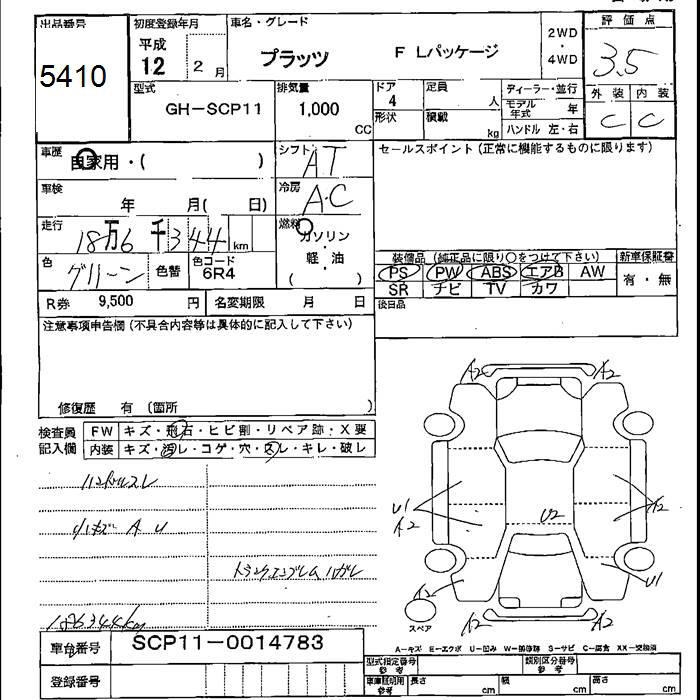 出品番号 初度登録年月 車名・グレード 評価点
5410 平成 12 2月 プラッツ F Lパッケージ 2WD・4WD 3.5
型式 排気量 ドア 定員 ディーラー・並行 外装 内装
GH-SCP11 1,000 CC 4 人 モデル年式 年 C C
形状 積載 kg ハンドル 左・右
車歴 自家用・( ) シフト AT セールスポイント (正常に機能するものに限ります)
車検 年 月( 日) 冷房 A.C
走行 18万6千344km 燃料 ガソリン・軽・油 ( )
装備品 (純正品に限り○をつけて下さい) 新車保証書
色 グリーン 色替 色コード 6R4 PS PW ABS エアB AW 有・無
SR ナビ TV カワ
R券 9,500円 名変期限 月 日 後日品
注意事項申告欄 (不具合内容等は具体的に記入して下さい)
修復歴 有 (箇所 )
A2 A2
検査員記入欄 FW キズ・飛石・ヒビ割・リペア跡・X要
内装 キズ・汚レ・コゲ・穴・スレ・キレ・破レ
ハンドルスレ
U1 A2 U2 A2
小キズ A U
トランクエンブレムハガレ U1
A2
186344km スペア A2 A2
車台番号 SCP11-0014783
A-キズ E-エクボ U-凹み W-補修跡 S-サビ C-腐食 XX-交換済
登録番号 型式指定番号 参考 類別区分番号 参考
車庫証明用 参考 長さ cm 幅 cm 高さ cm